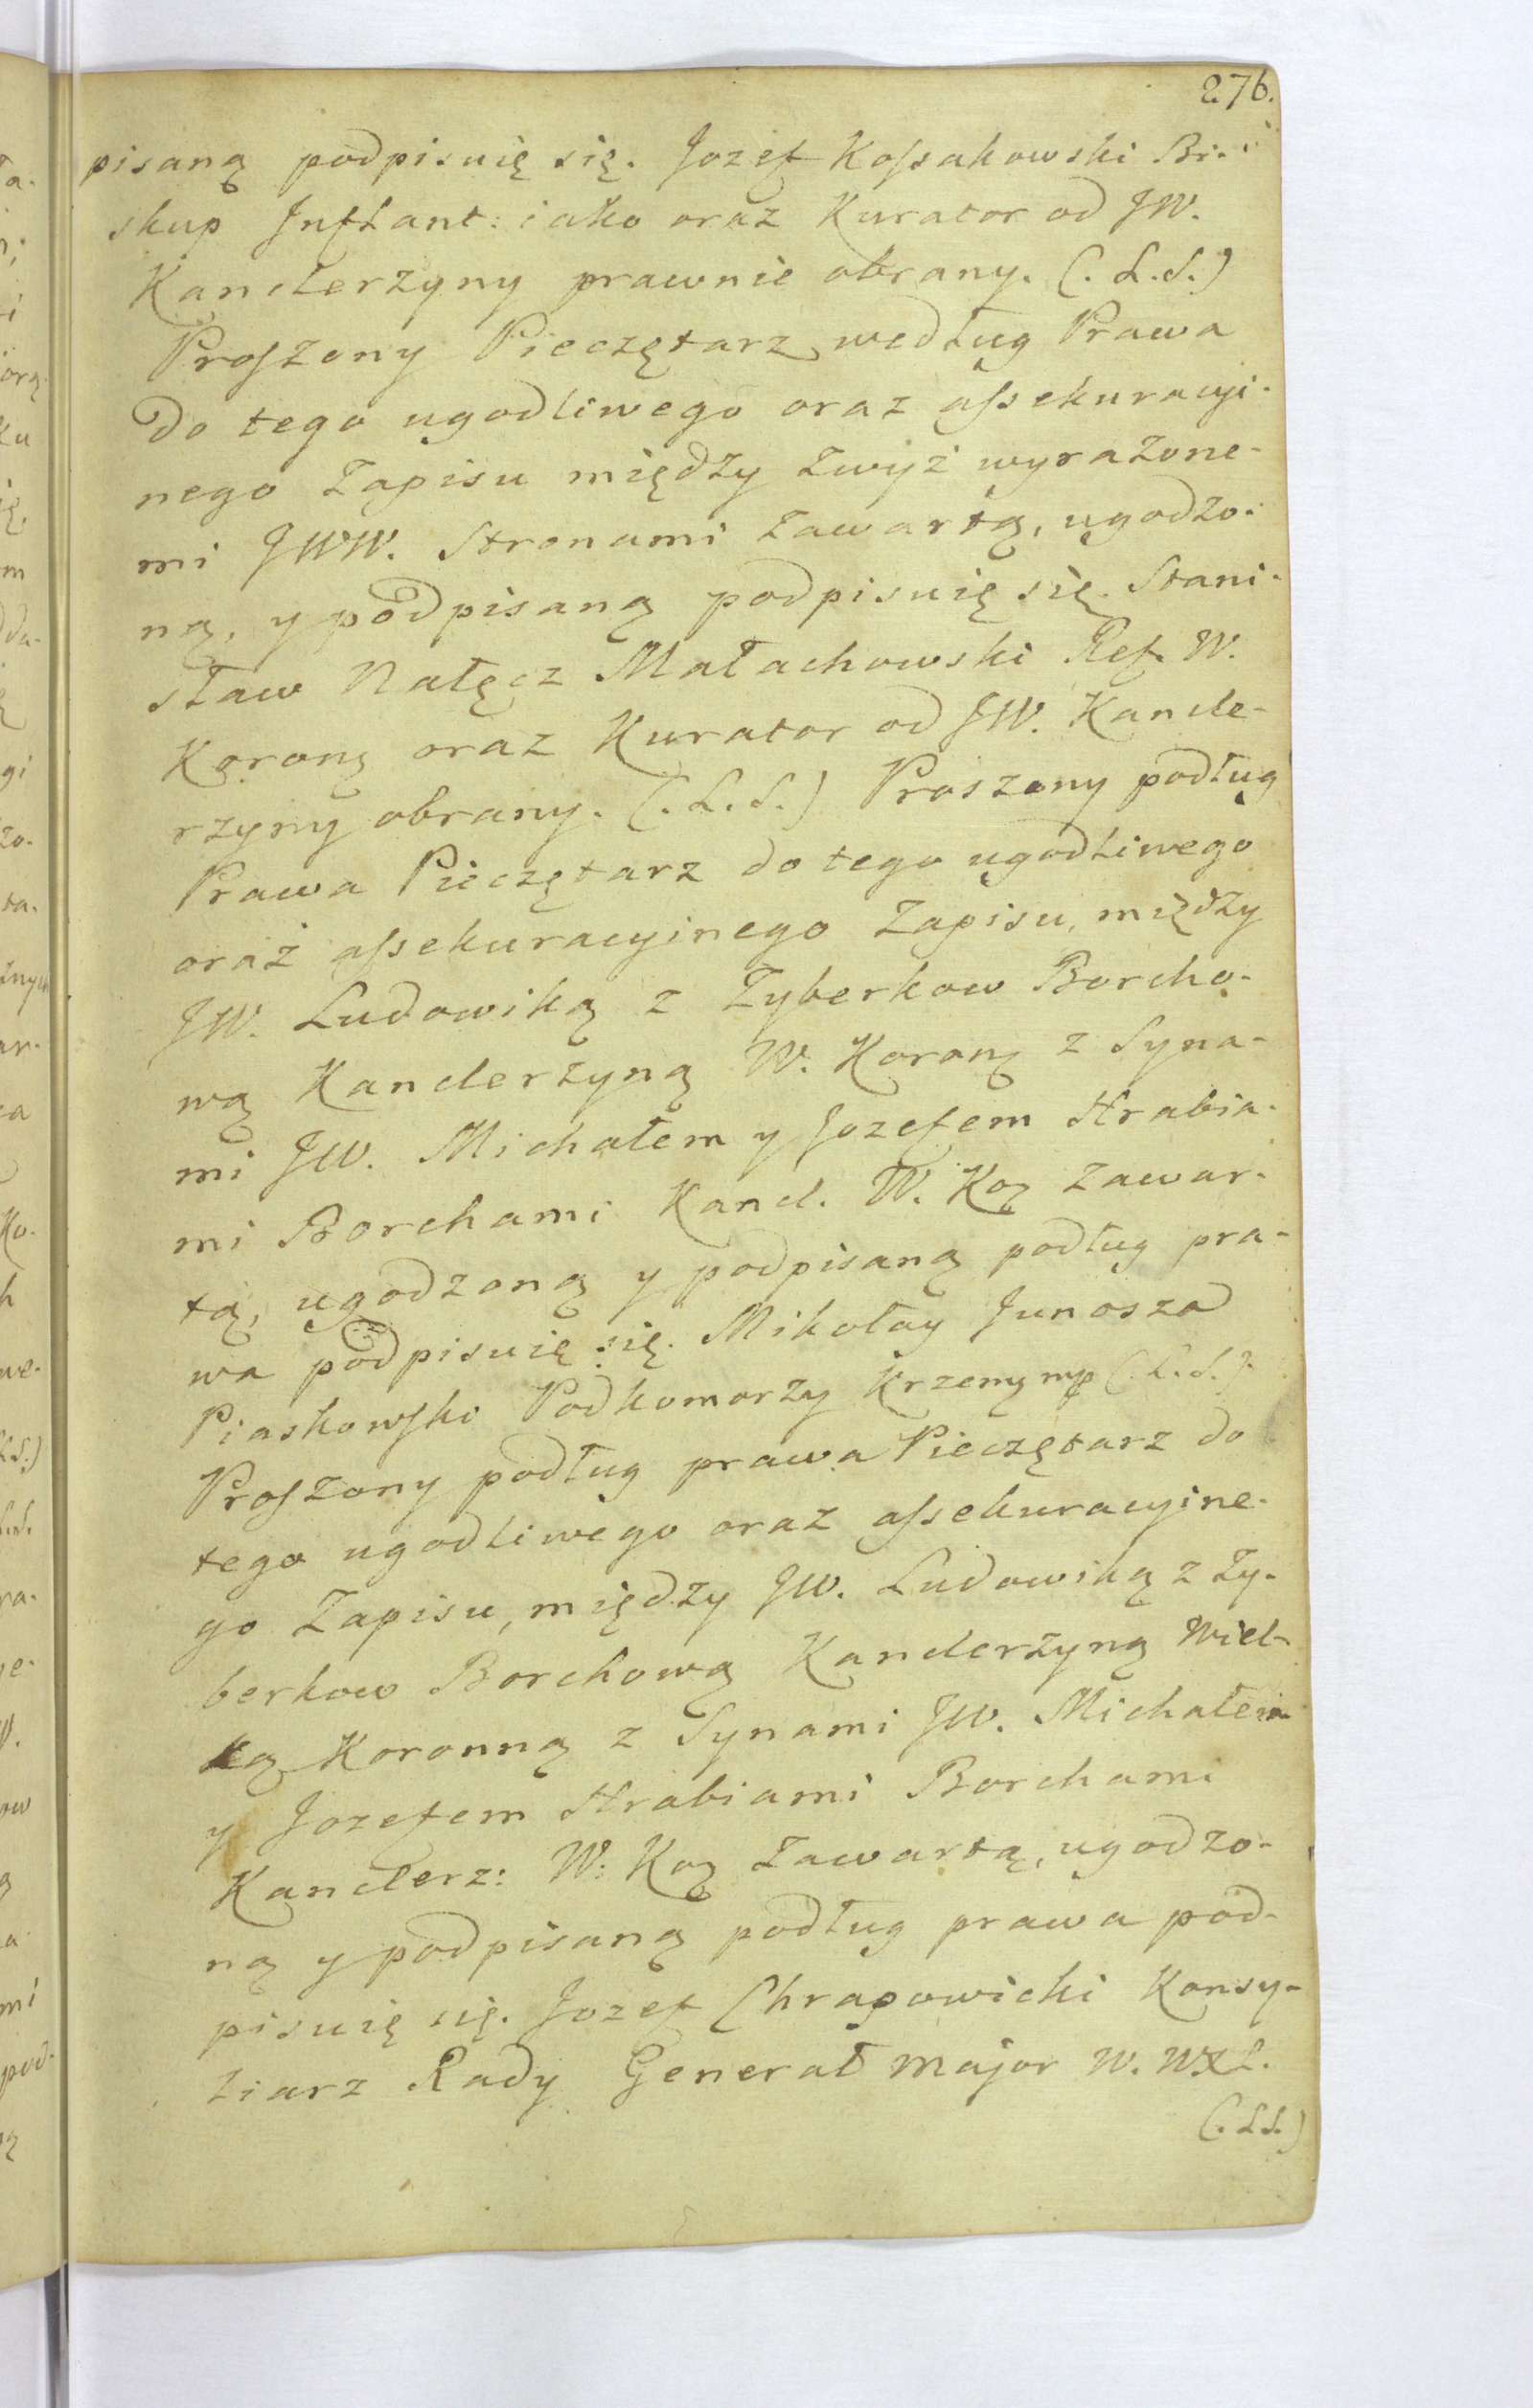 276.
pisaną podpisuię się. Jozef Kossakowski Bi-
skup Inflant: iako oraz Kurator od JW.
Kanclerzyny prawnie obrany. (. L.S.)
Proszony Pieczętarz według Prawa
do tego ugodliwego oraz assekuracyi-
nego Zapisu między zwyż wyrażone-
mi JWW. Stronami zawartą, ugodzo-
ną, y podpisaną podpisuię się. Stani-
sław Nałęcz Małachowski Ref. W.
Koronę oraz Kurator od JW. Kancle-
rzyny obrany. (. L.S.) Proszony podług
Prawa Pieczętarz do tego ugodliwego
oraz assekuracyinego Zapisu, między
JW. Ludowiką z Zyberkow Borcho-
wą Kanclerzyną W. Koroną z Syna-
mi JW. Michałem y Jozefem Hrabia-
mi Borchami Kancl. W. Koą zawar-
tą, ugodzoną y podpisaną podług pra-
wa podpisuię się. Mikołay Junosza
Piaskowski Podkomorzy Krzemą mp (. L.S.)
Proszony podług prawa Pieczętarz do
tego ugodliwego oraz assekuracyine-
go Zapisu, między JW. Ludowiką z Zy-
berkow Borchową Kanclerzyną Wiel-
ką Koronną z Synami JW. Michałem
y Jozefem Hrabiami Borchami
Kanclerz: W: Koą zawartą, ugodzo-
ną y podpisaną podług prawa pod-
pisuię się. Jozef Chrapowicki Konsy-
liarz Rady Generał Major W. WXL.
(. LS.)